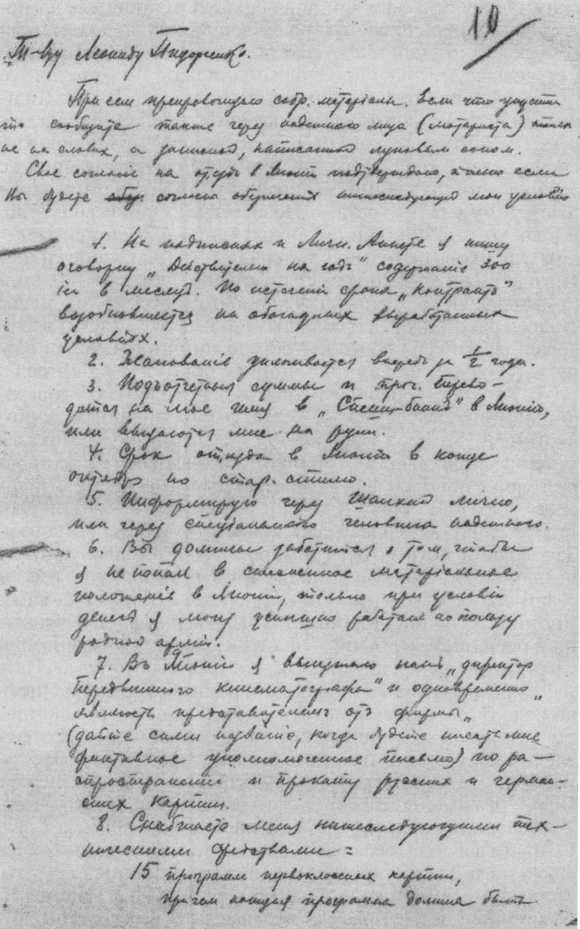 10
Т-щу Леониду Пидоренко.
При сем препровождаю собр. матеріалы. Если что упустил
то сообщите также через надежного лица (мотариста) только
не на словах, а запиской, написанной луковым соком.
Свое согласіе на отъезд в Японію подтверждаю, только если
Вы будете согласны нижеследующія мои условія
1. На надписанах и Личн. Анкете я пишу
оговорку „Действителен на год" содержание 300
іен в месяц. По истеченіи срока „Контракт"
возобновляется на обоюдных выработанных
условіях.
2. Жалованіе уплачивается вперед за 1/2 года.
3. Подъотчетныя суммы и проч. перево-
дятся на мое имя в „Банк" в Японію,
или выдаются мне на руки.
4. Срок отъезда в Японію в конце
октября по стар. стилю.
5. Информирую через Шанхай лично,
или через спеціального человека надежного.
6. Вы должны заботится о том, чтобы
я не попал в стесненное матеріальное
положеніе в Японіи, только при условіи
денег я могу успешно работать на пользу
родной арміи.
7. Въ Японіи я выступаю как „директор
передвижного кинематографа" и одновременно
являюсь представителем отъ фирмы „ "
(дайте сами названіе, когда будете писать мне
фиктивное уполномоченное письмо) по ра-
спространенію и прокату русских и герман-
ских картин.
8. Снабжаете меня нижеследующими тех-
ническими средствами =
15 программ первоклассных картин,
при чем каждая программа должна быть